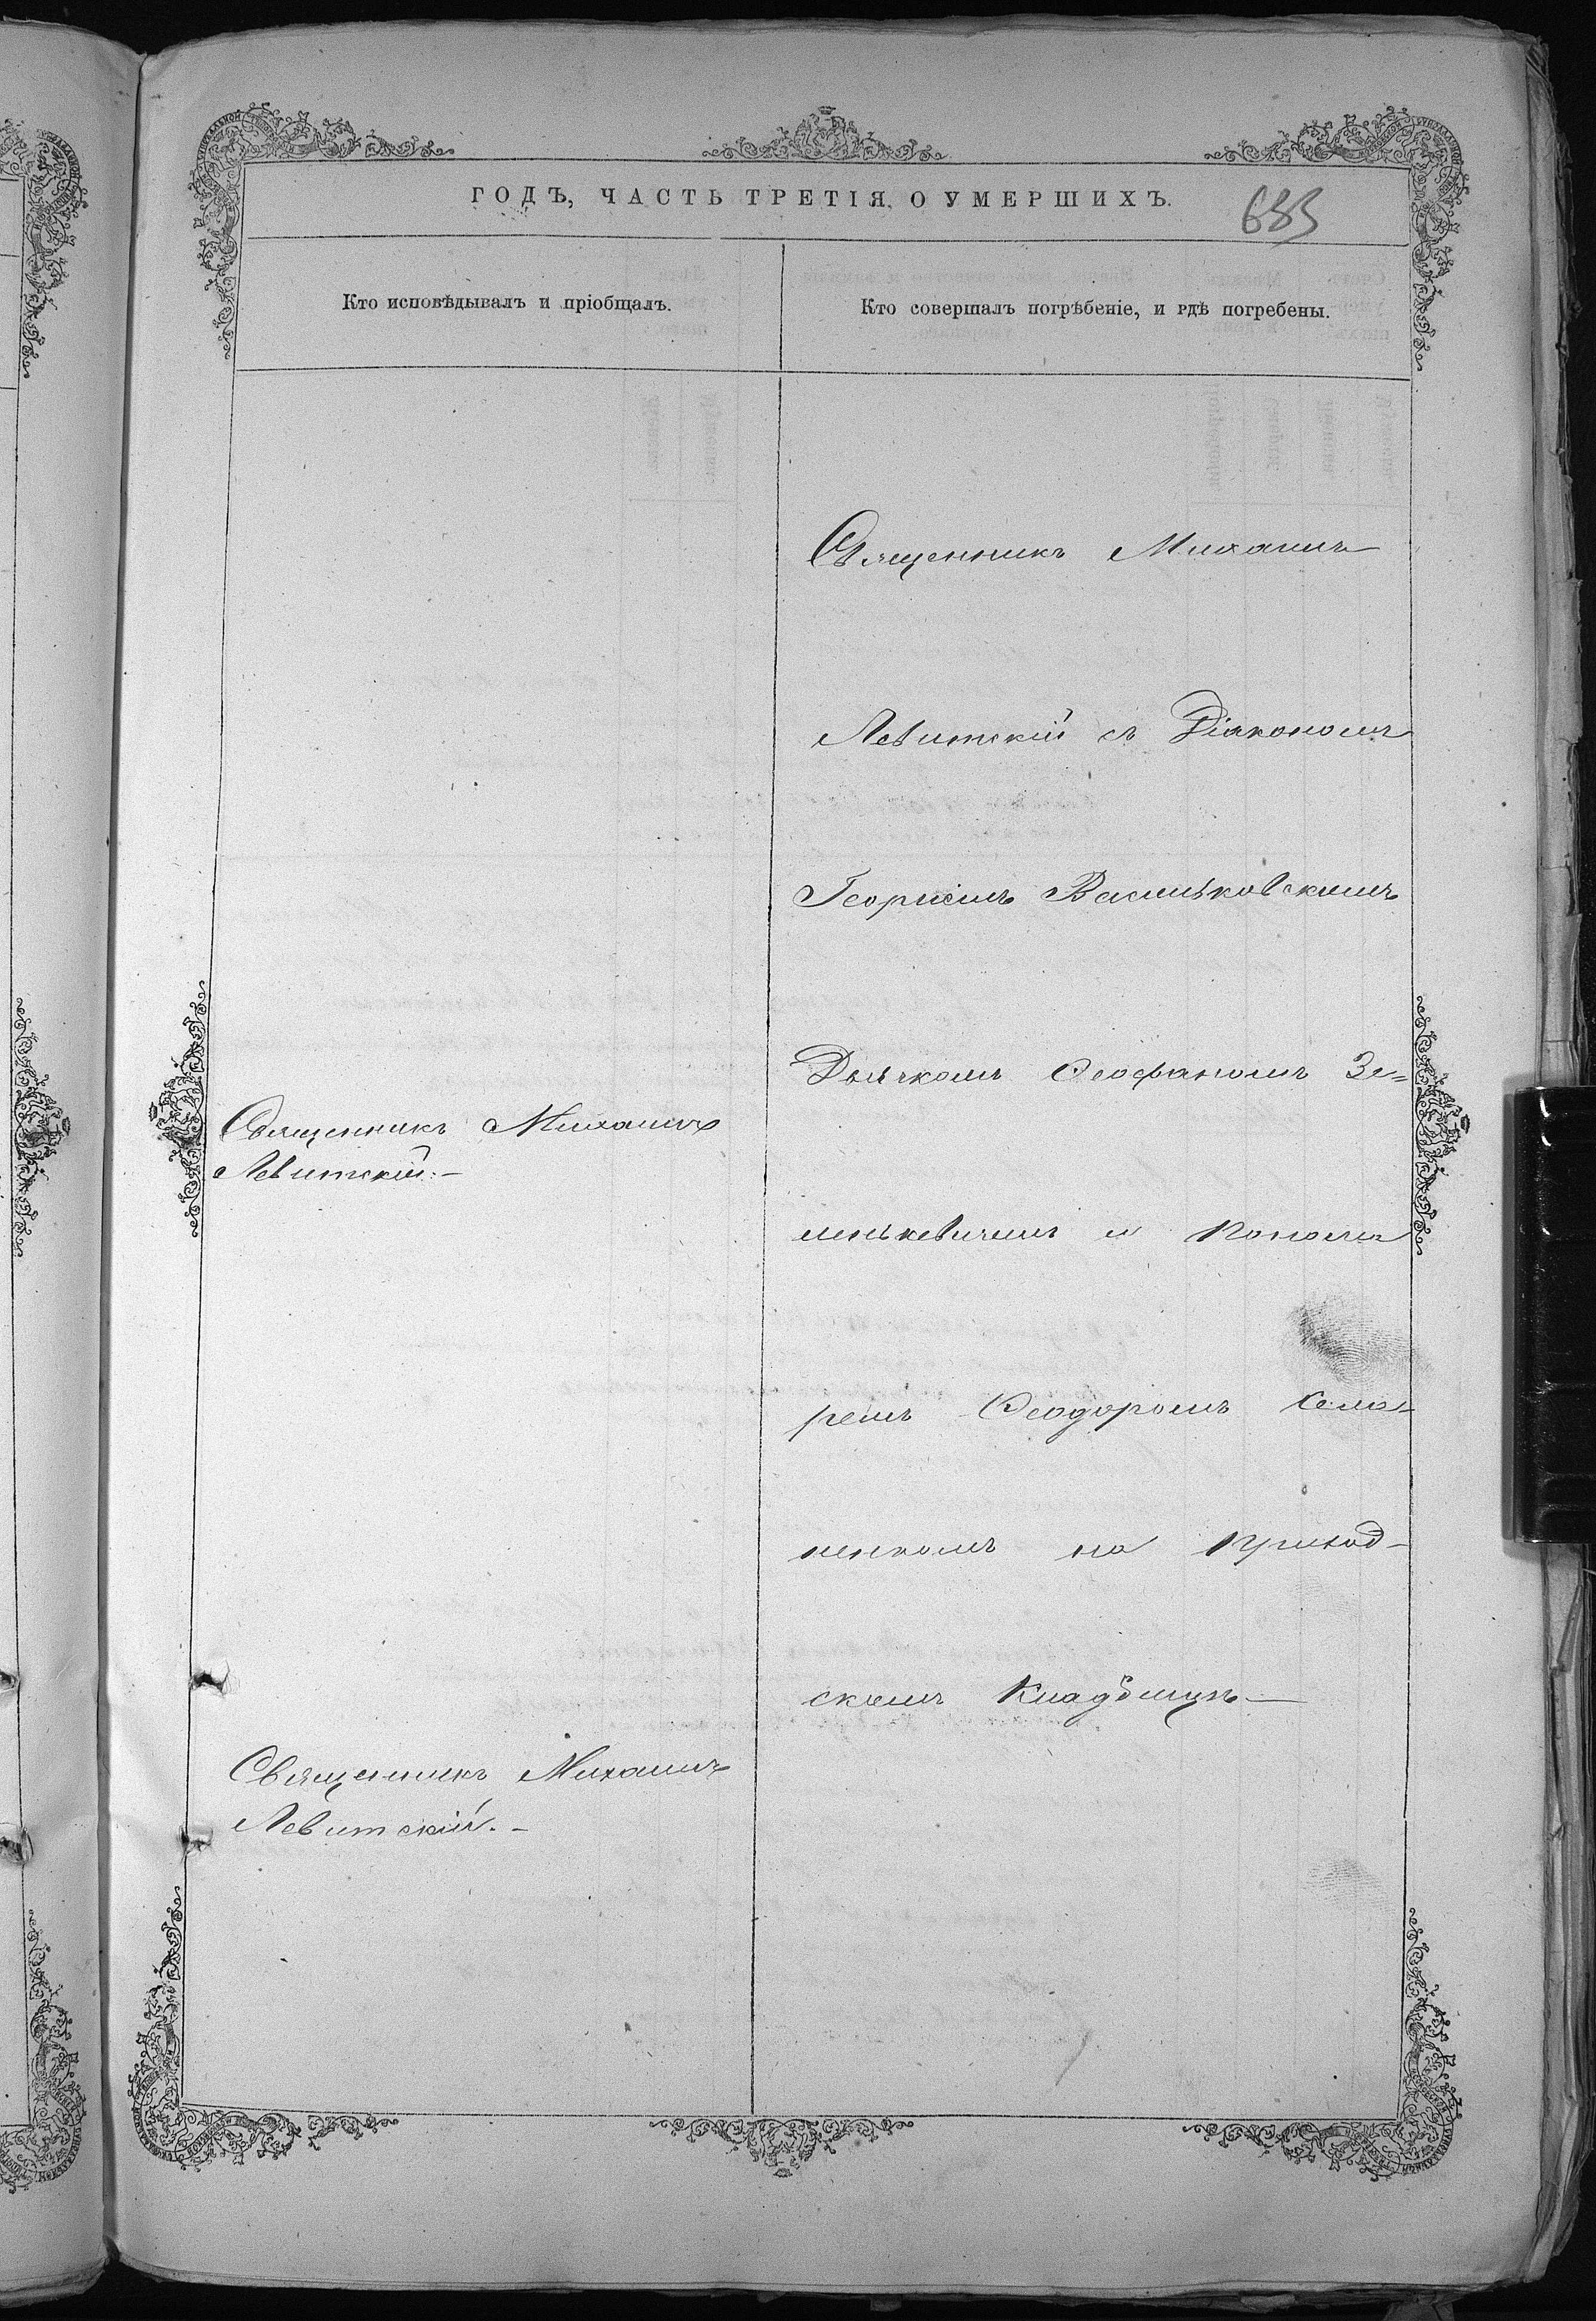 ГОДЪ, ЧАСТЬ ТРЕТІЯ, О УМЕРШИХЪ.
683
Кто исповѣдывалъ и пріобщалъ.
Кто совершалъ погрѣбеніе, и гдѣ погребены.
Священникъ Михаилъ
Левитскій.-
Священникъ Михаилъ
Левитскій.-
Священникъ Михаилъ
Левитскій съ Діакономъ
Георгіемъ Васильковскимъ
Дьячкомъ Ѳеофаномъ Зе=
леньκевичемъ и Понома
ремъ Ѳеодоромъ
на приход-
скомъ Кладбищѣ